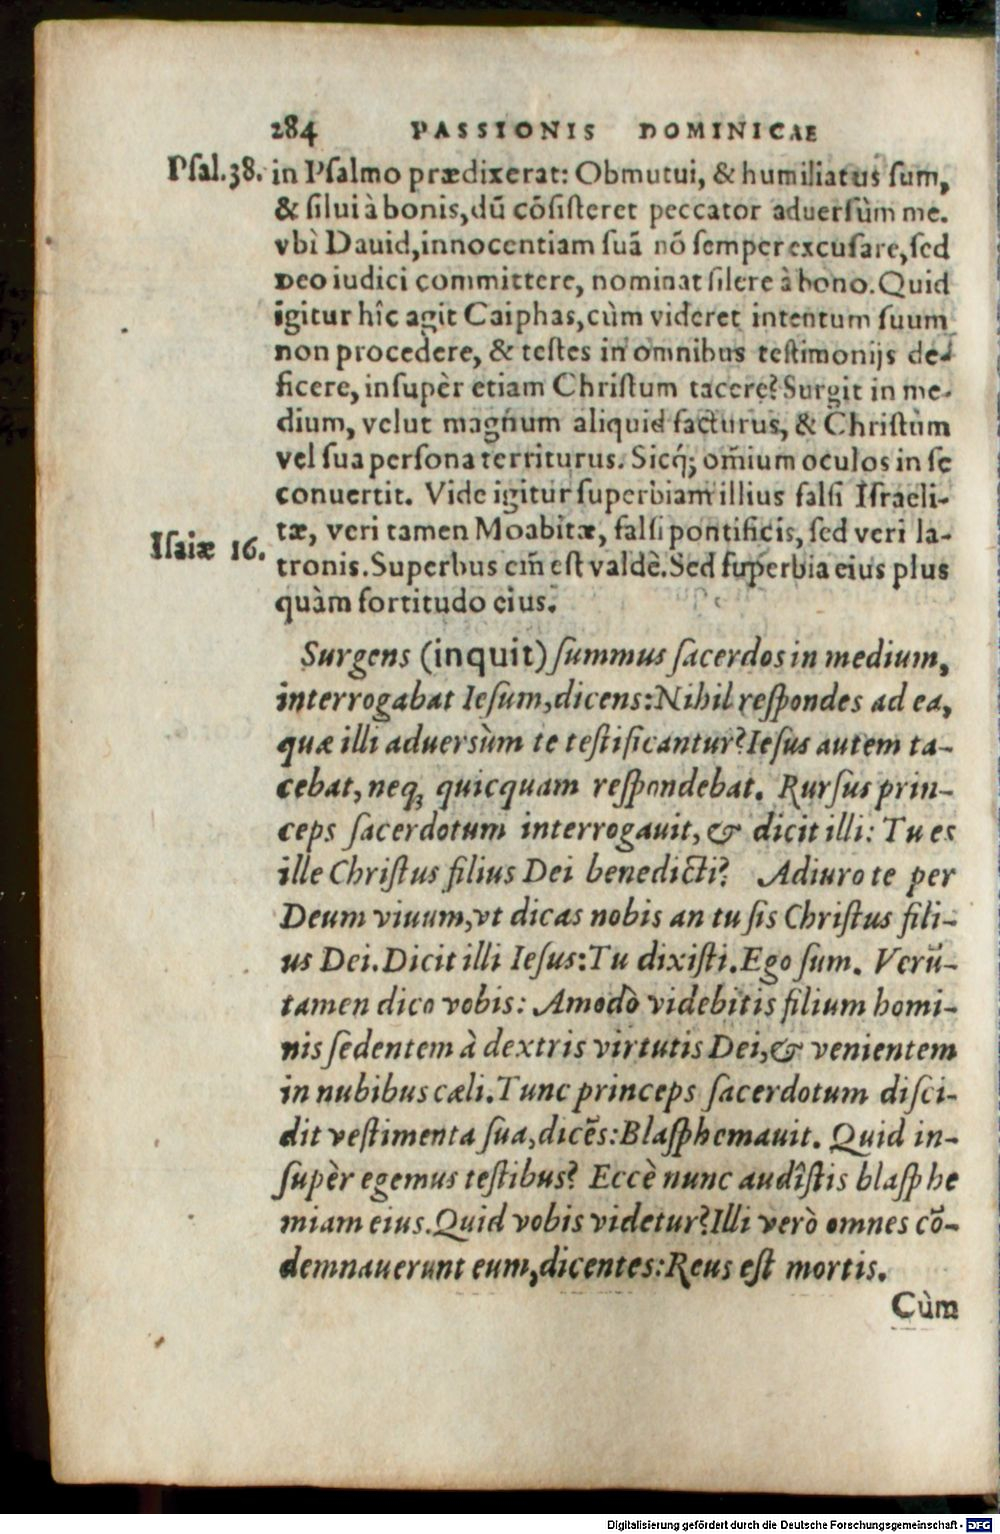 284 PASSIONIS DOMINICAE
Pſal.38. in Pſalmo prædixerat: Obmutui, & humiliatus ſum,
& ſilui à bonis, dū cōſiſteret peccator aduerſùm me.
vbì Dauid, innocentiam ſuā nō ſemper excuſare, ſed
Deo iudici committere, nominat ſilere à bono. Quid
igitur hîc agit Caiphas, cùm videret intentum ſuum
non procedere, & teſtes in omnibus teſtimonijs de-
ficere, inſupèr etiam Chriſtum tacere? Surgit in me-
dium, velut magnum aliquid facturus, & Chriſtum
vel ſua perſona territurus. Sicq́; om̄ium oculos in ſe
conuertit. Vide igitur ſuperbiam illius falſi Iſraeli-
tæ, veri tamen Moabitæ, falſi pontificis, ſed veri la-
Iſaiæ 16. tronis. Superbus em̄ eſt valdè. Sed ſuperbia eius plus
quàm fortitudo eius.
Surgens (inquit) ſummus ſacerdos in medium,
interrogabat Ieſum, dicens: Nihil reſpondes ad ea,
quæ illi aduersùm te teſtificantur? Ieſus autem ta-
cebat, neq; quicquam reſpondebat. Rurſus prin-
ceps ſacerdotum interrogauit, & dicit illi: Tu es
ille Chriſtus filius Dei benedicti? Adiuro te per
Deum viuum, vt dicas nobis an tu ſis Chriſtus fili-
us Dei. Dicit illi Ieſus: Tu dixiſti. Ego ſum. Verū-
tamen dico vobis: Amodò videbitis filium homi-
nis ſedentem à dextris virtutis Dei, & venientem
in nubibus cæli. Tunc princeps ſacerdotum diſci-
dit veſtimenta ſua, dicēs: Blaſphemauit. Quid in-
ſupèr egemus teſtibus? Eccè nunc audîſtis blaſphe
miam eius. Quid vobis videtur? Illi verò omnes cō-
demnauerunt eum, dicentes: Reus eſt mortis.
Cùm
Digitalisierung gefördert durch die Deutsche Forschungsgemeinschaft - DFG